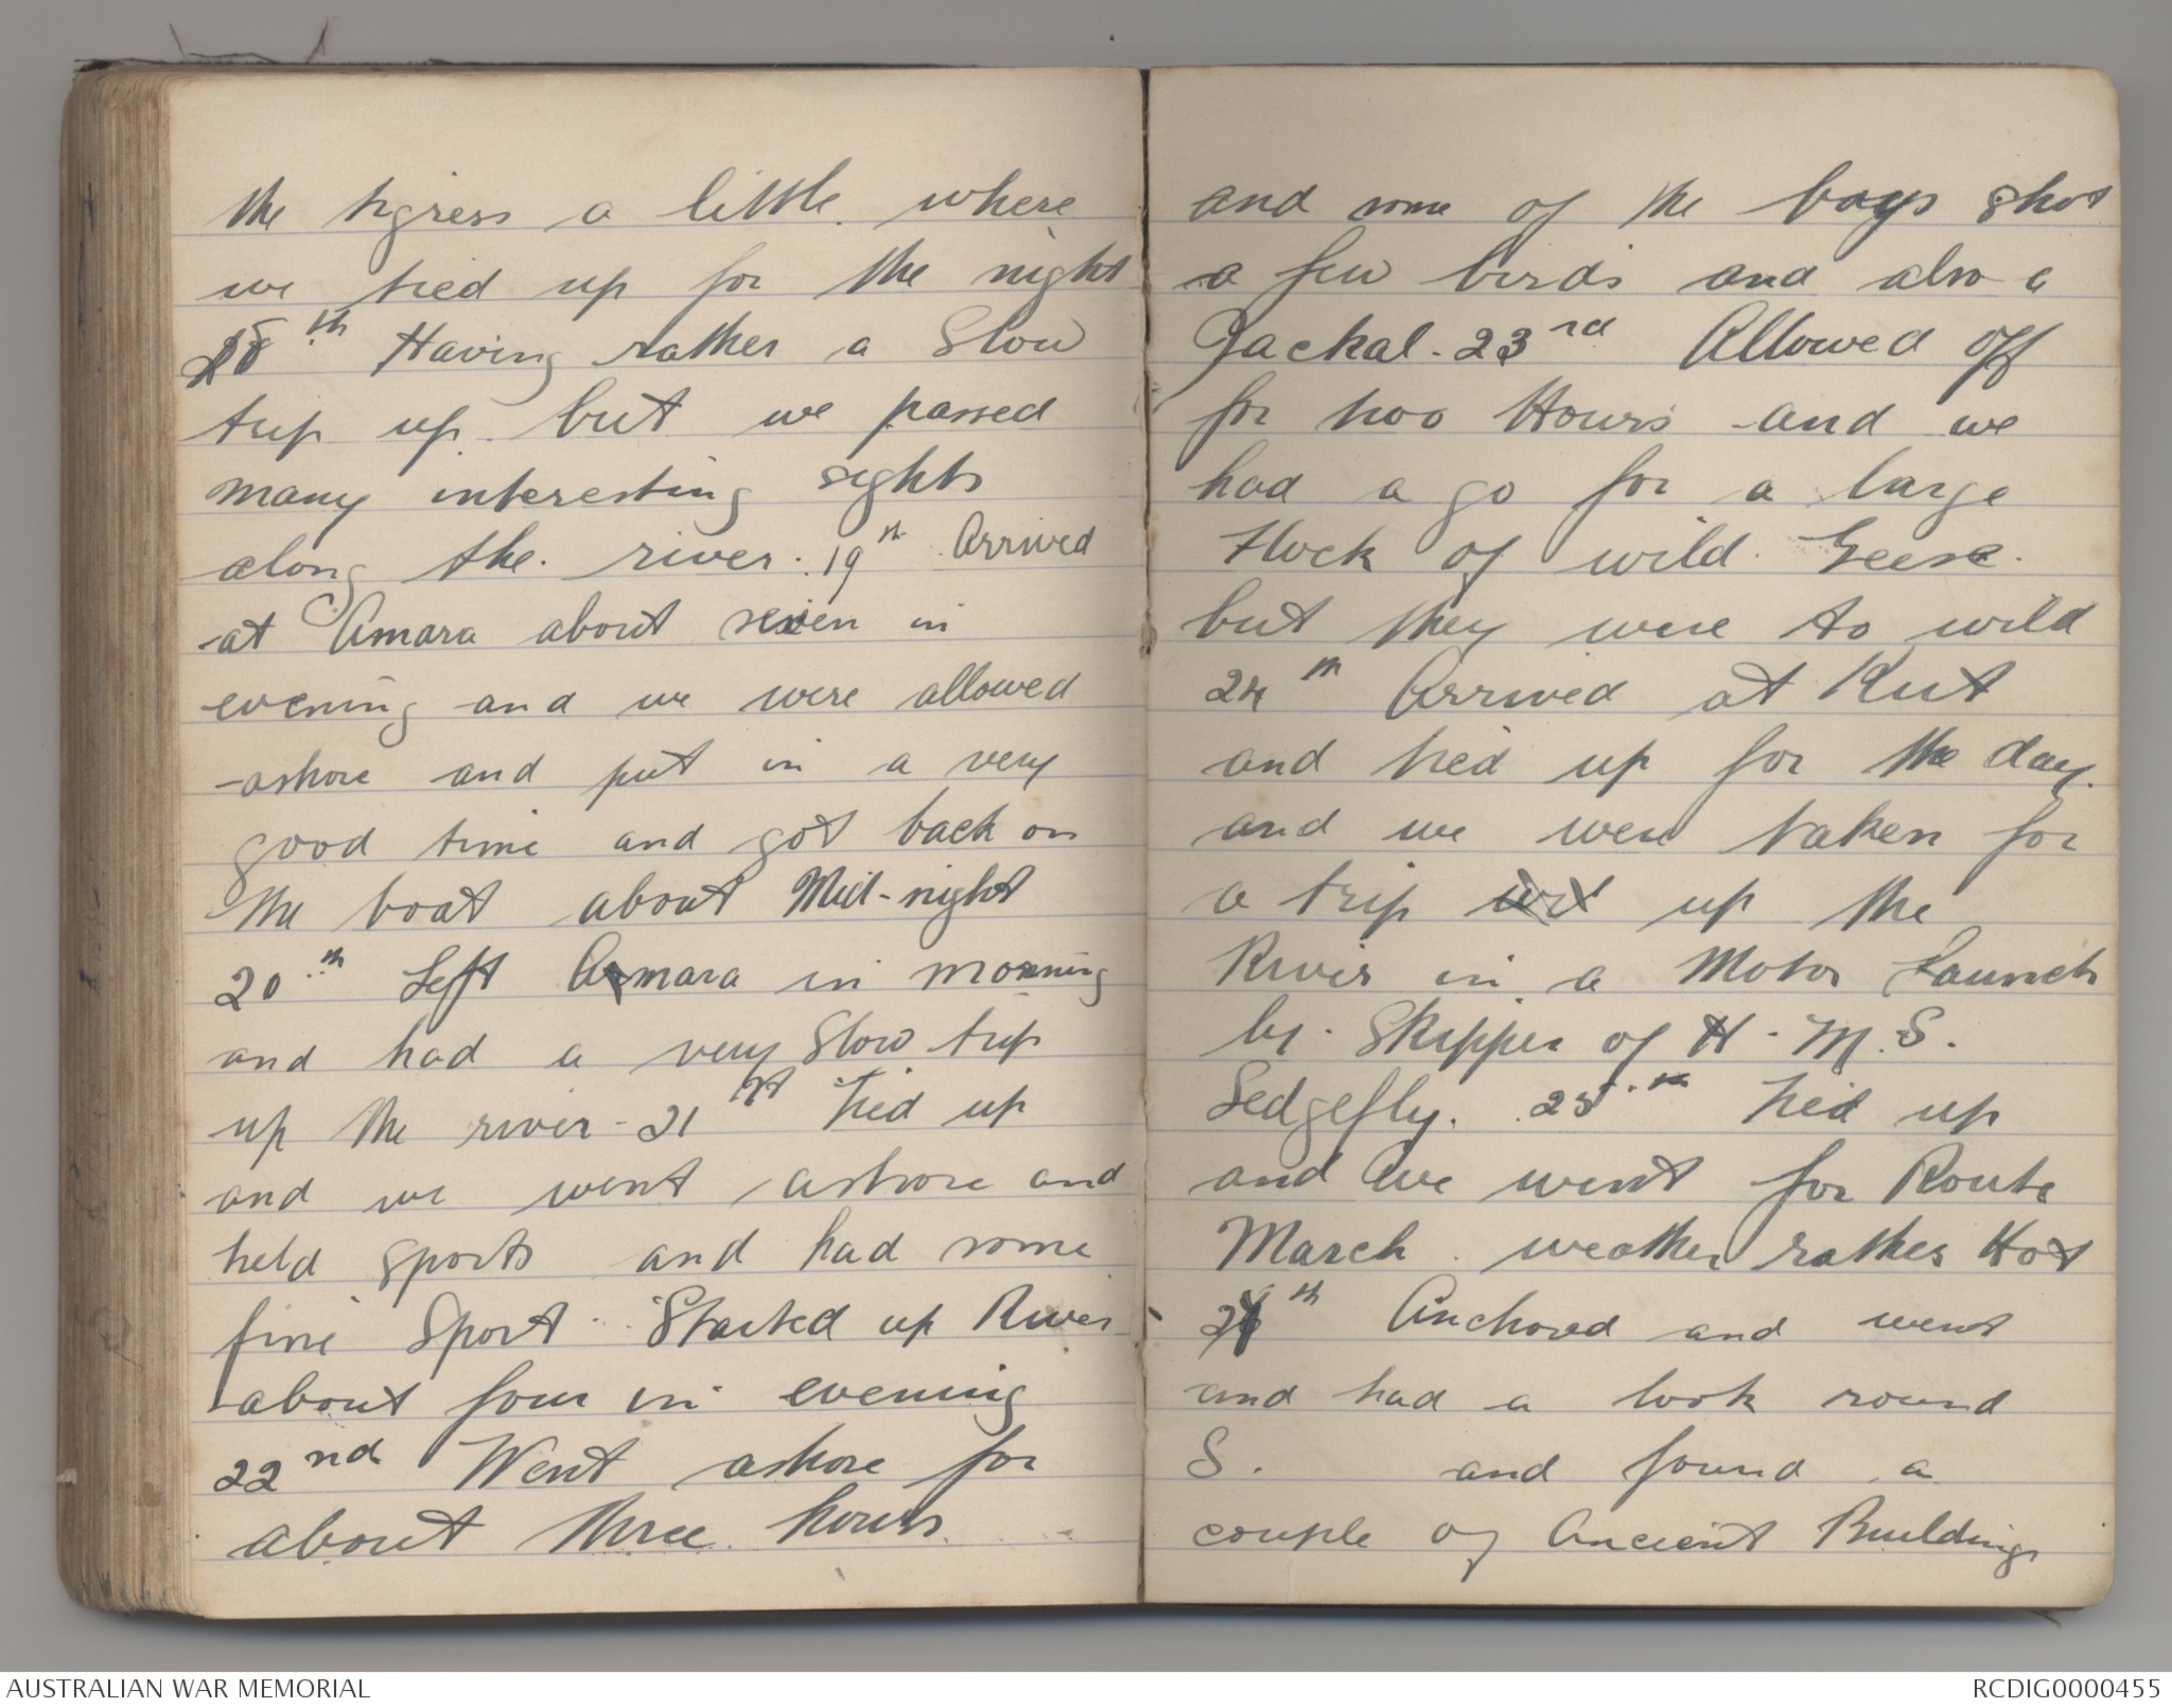 the tigress a little where
we tied up for the night
18th Having rather a Slow
trip up but we passed
many interesting sights
along the river. 19th Arrived
at Amara about seven in
evening and we were allowed
ashore and put in a very
good time and got back on
the boat about Mid-night
20th Left Amara in morning
and had a very Slow trip
up the river - 21st Tied up
and we went ashore and
held sports and had some
fine Sport. Started up River
about four in evening
22nd Went ashore for
about three hours
and some of the boys shot
a few birds and also a
Jackal. 23rd Allowed off
for two Hours and we
had a go for a large
Flock of wild Geese.
but they were to wild
24th Arrived at Kut
and tied up for the day.
and we were taken for
a trip up the
River in a Motor Launch
by Skipper of H.M.S.
Sedgefly. 25th Tied up
and we went for Route
March. weather rather Hot
26th Anchored and went
and had a look round
S. and found a
couple of Ancient Buildings
AUSTRALIAN WAR MEMORIAL
RCDIG0000455